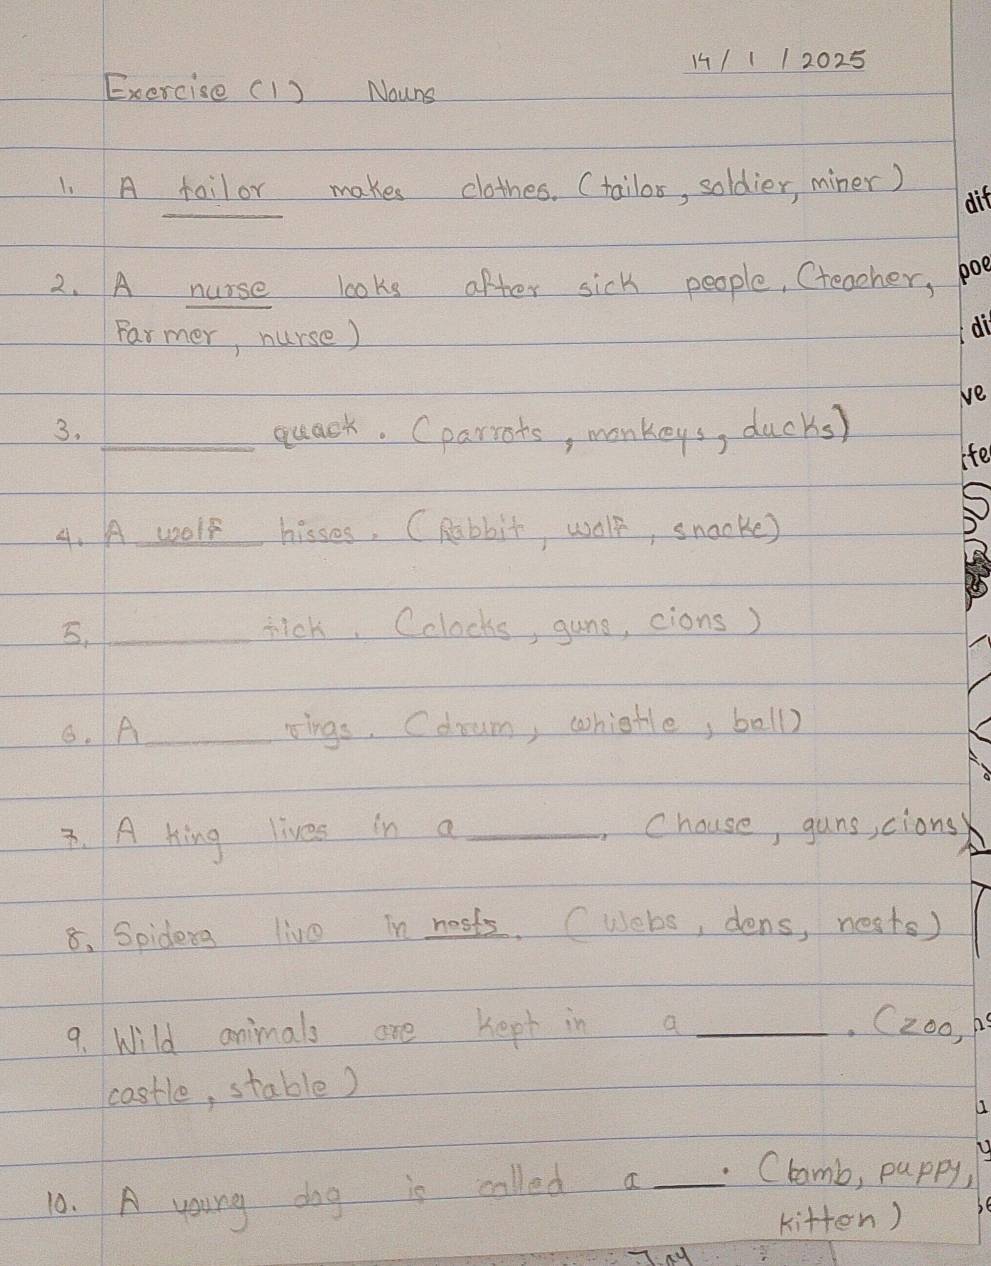 14/1/2025
Exercise (1) Nouns
1. A tailor makes clothes. (tailor, soldier, miner)
2. A nurse looks after sick people. (teacher,
Farmer, nurse)
3. ________ quack. (parrots, monkeys, ducks)
4. A wolf hisses. (Rabbit, wolf, snacke)
5. ________ tick. (clocks, guns, cions)
6. A ________ rings. (drum, whistle, ball)
7. A king lives in a ________. (house, guns, cions)
8. Spiders live in nests. (webs, dens, nests)
9. Wild animals are kept in a ________. (zoo,
castle, stable)
10. A young dog is called a ____. (lamb, puppy,
kitten)
dif
poe
di
ve